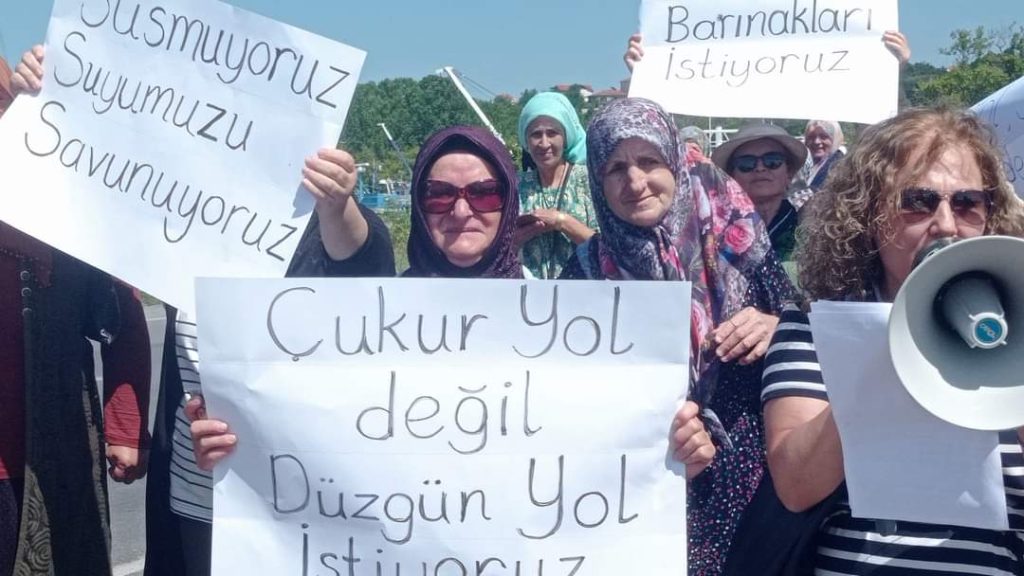 Susmuyoruz
Suyumuzu
Savunuyoruz
Barınakları
İstiyoruz
Çukur Yol
değil
Düzgün Yol
İstiyoruz